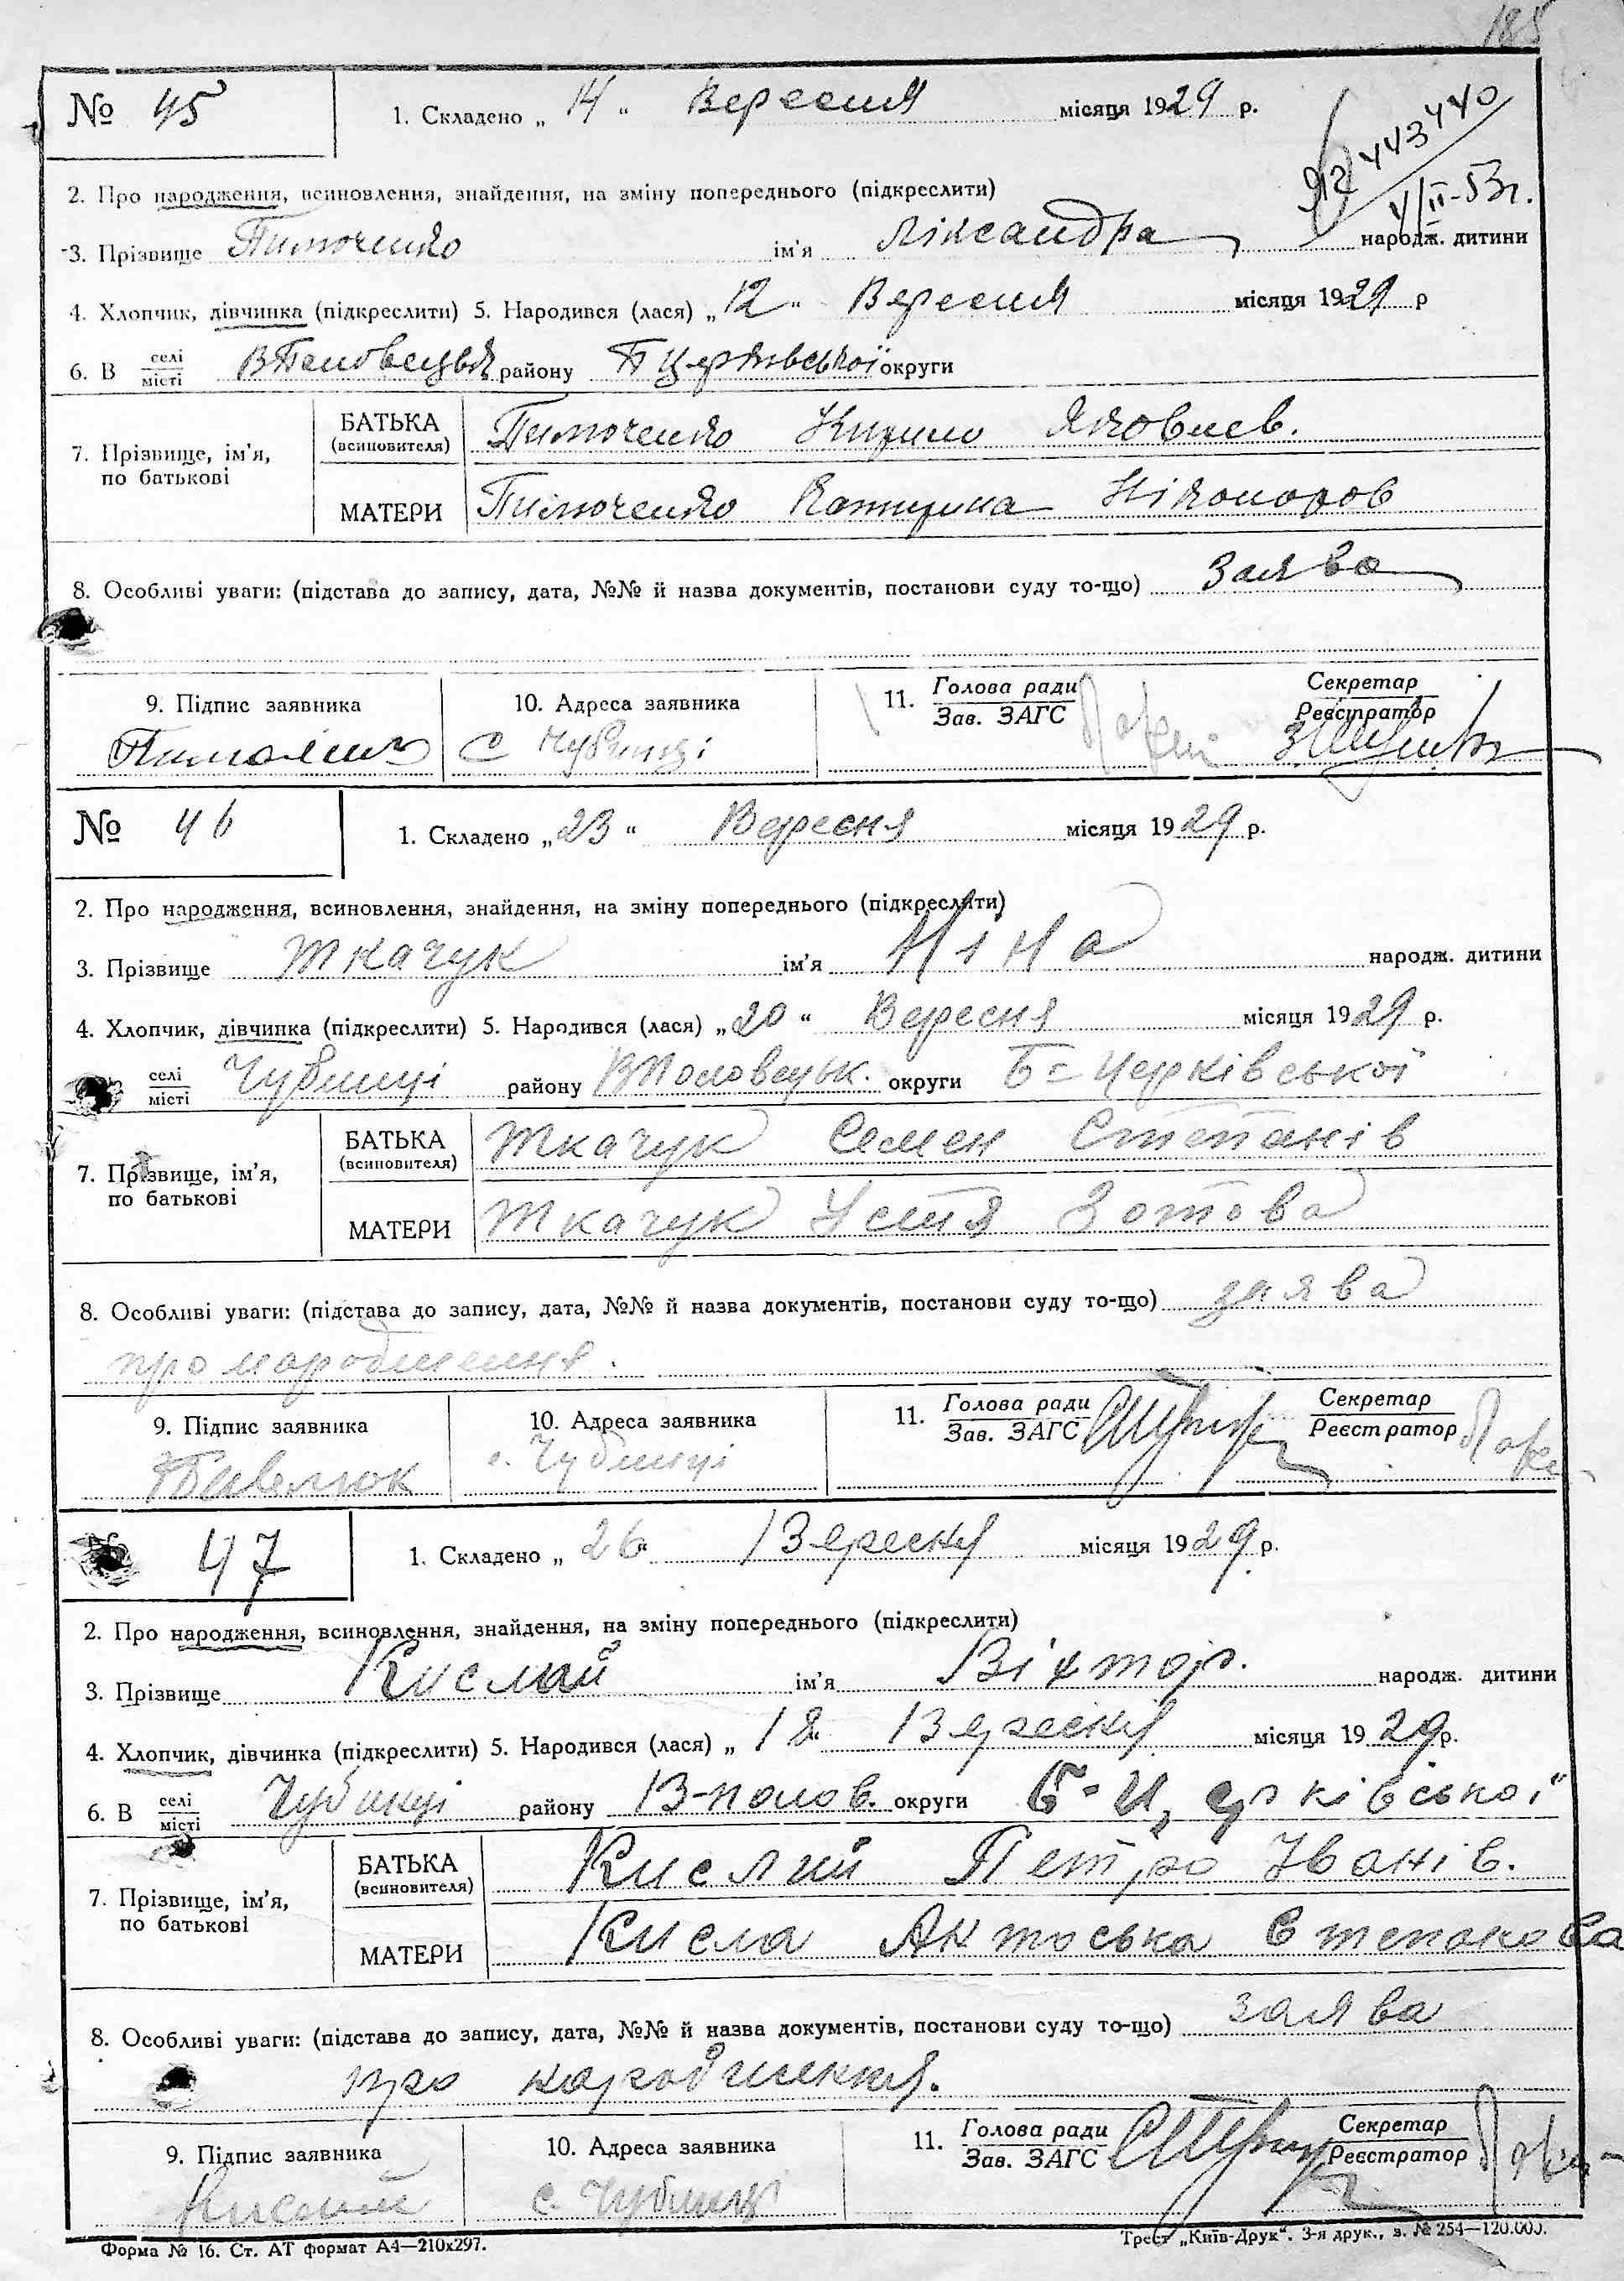 185
№ 45 1. Складено „ 14 “ Вересня місяця 1929 р.
912 443440
V/II-53г.
2. Про народження, всиновлення, знайдення, на зміну попереднього (підкреслити)
3. Прізвище Тимоченко ім'я Ліксандра народж. дитини
4. Хлопчик, дівчинка (підкреслити) 5. Народився (лася) „12“ Вересня місяця 1929 р
6. В селі/місті ВПоловецьк району БЦерківської округи
7. Прізвище, ім'я, по батькові
БАТЬКА (всиновителя) Тимоченко Кирило Яковлев.
МАТЕРИ Тимоченко Катирина Ніконоров
8. Особливі уваги: (підстава до запису, дата, №№ й назва документів, постанови суду то-що) Заява
9. Підпис заявника 10. Адреса заявника 11. Голова ради/Зав. ЗАГС Секретар/Реєстратор
с Чубинці
№ 46 1. Складено „23“ Вересня місяця 1929 р.
2. Про народження, всиновлення, знайдення, на зміну попереднього (підкреслити)
3. Прізвище Ткачук ім'я Ніна народж. дитини
4. Хлопчик, дівчинка (підкреслити) 5. Народився (лася) „20“ Вересня місяця 1929 р.
селі/місті Чубинці району ВПоловецьк. округи Б=Церківської
7. Прізвище, ім'я, по батькові
БАТЬКА (всиновителя) Ткачук Семен Степанів
МАТЕРИ Ткачук Устя Зотова
8. Особливі уваги: (підстава до запису, дата, №№ й назва документів, постанови суду то-що) заява
про народження.
9. Підпис заявника 10. Адреса заявника 11. Голова ради/Зав. ЗАГС Секретар/Реєстратор
с. Чубинці
47 1. Складено „ 26“ Вересня місяця 1929 р.
2. Про народження, всиновлення, знайдення, на зміну попереднього (підкреслити)
3. Прізвище Кислий ім'я Віктор. народж. дитини
4. Хлопчик, дівчинка (підкреслити) 5. Народився (лася) „ 18“ Вересня місяця 1929р.
6. В селі/місті Чубинці району В-полов. округи Б-Церківської
7. Прізвище, ім'я, по батькові
БАТЬКА (всиновителя) Кислий Петро Іванів.
МАТЕРИ Кисла Антоська Степанова
8. Особливі уваги: (підстава до запису, дата, №№ й назва документів, постанови суду то-що) заява
про народження.
9. Підпис заявника 10. Адреса заявника 11. Голова ради/Зав. ЗАГС Секретар/Реєстратор
Кислий с. Чубинці
Форма № 16. Ст. АТ формат А4—210х297. Трест „Київ-Друк“. 3-я друк., з. № 254—120.000.